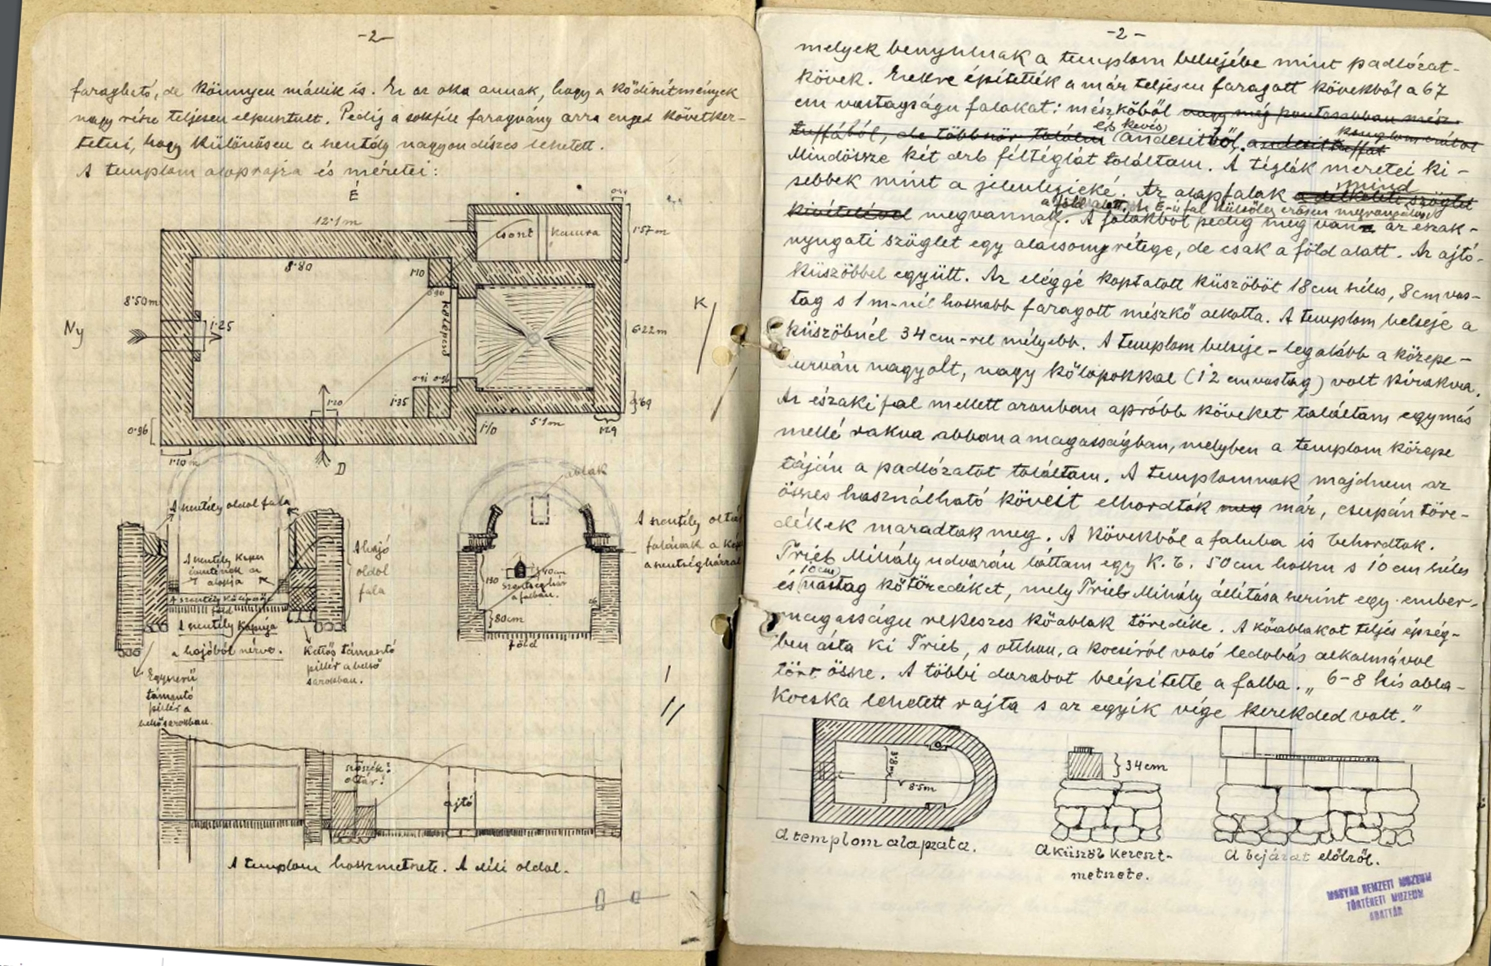 -2-
faragható, de könnyen mállik is. Ez az oka annak, hogy a ködíszítmények
nagy része teljesen elpusztult. Pedig a sokféle faragvány arra enged következ-
tetni, hogy különösen a szentély nagyon díszes lehetett.
A templom alaprajza és méretei:
É
12·1m
csont kamra
1·57m
8·80
1·10
0·96
8·50m
1·25
Ny
középcső
K
6·22m
0·41
1·20
1·35
0·96
1·10m
D
1·10
5·1m
1·29
0·69
A szentély oldal fala
A hajó
oldol
fala
A szentély kapu
alapja
föld
A szentély kapuja
a hajóból nézve.
Egyszerű
támasztó
pillér a
belső sarokban.
Kettős támasztó
pillér a belső
sarokban.
ablak
A szentély oltár
falának a
a szentségházzal
130
40cm
szentségház
a falban.
80cm
föld
szószék?
oltár?
ajtó
A templom hosszmetszete. A déli oldal.
-2-
melyek benyúlnak a templom belsejébe mint padlózat-
kövek. Ezekre építették a már teljesen faragott kövekből a 67
cm vastagságu falakat: mészkőből vagy még pontosabban mész-
tuffából, de többször találni és kevés andesitből. andesittuffát
konglomerátot
Mindössze két drb féltéglát találtam. A téglák méretei ki-
sebbek mint a jelenlegieké. Az alapfalak a délkeleti szöglet
mind
kivételével megvannak. A falakból pedig meg van az észak-
a föld alatt. Az É-i fal külsőleg erősen megrongálva
nyugati szöglet egy alacsony rétege, de csak a föld alatt. Az ajtó-
küszöbbel együtt. Az eléggé koptatott küszöböt 18cm széles, 8cm vas-
tag s 1m-nél hosszabb faragott mészkő alkotta. A templom belseje a
küszöbnél 34cm-rel mélyebb. A templom belseje - legalább a közepe-
durván nagyolt, nagy kőlapokkal (12 cm vastag) volt kirakva.
Az északi fal mellett azonban apróbb köveket találtam egymás
mellé rakva abban a magasságban, melyben a templom közepe
táján a padlózatot találtam. A templomnak majdnem az
összes használható kövét elhordták meg már, csupán töre-
dékek maradtak meg. A kövekből a faluba is behordtak.
Trieb Mihály udvarán láttam egy K.b. 50cm hosszu s 10cm széles
és 10cm vastag kőtöredéket, mely Trieb Mihály állítása szerint egy ember-
magasságu rekeszes kőablak töredéke. A kőablakot teljes épség-
ben ásta ki Trieb, s otthon, a kocsiról való ledobás alkalmával
tört össze. A többi darabot beépítette a falba. „6-8 kis abla-
kocska lehetett rajta s az egyik vége kerekded volt."
8·5m
A templom alapzata.
34cm
A küszöb kereszt-
metszete.
A bejárat előlről.
MAGYAR NEMZETI MUZEUM
TÖRTÉNETI MUZEUM
ADATTÁR